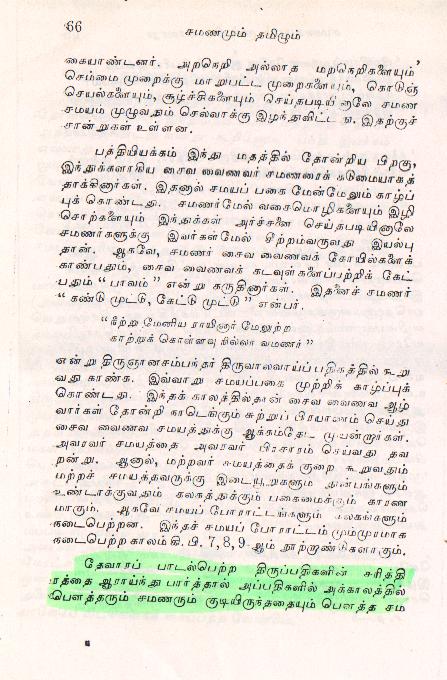 66
சமணமும் தமிழும்
கையாண்டனர். அறநெறி அல்லாத மறநெறிகளையும்
செம்மை முறைக்கு மாறுபட்ட முறைகளையும், கொடுஞ்
செயல்களையும், சூழ்ச்சிகளையும் செய்தபடியினாலே சமண
சமயம் முழுவதும் செல்வாக்கு இழந்துவிட்டது. இதற்குச்
சான்றுகள் உள்ளன.
பத்தியியக்கம் இந்து மதத்தில் தோன்றிய பிறகு,
இந்துக்களாகிய சைவ வைணவர் சமணரைக் கடுமையாகத்
தாக்கினார்கள். இதனால் சமயப் பகை மேன்மேலும் காழ்ப்
புக் கொண்டது. சமணர்மேல் வசைமொழிகளையும் இழி
சொற்களையும் இந்துக்கள் அர்ச்சனை செய்தபடியினாலே
சமணர்களுக்கு இவர்கள்மேல் சீற்றம்வருவது இயல்பு
தான். ஆகவே, சமணர் சைவ வைணவக் கோயில்களைக்
காண்பதும், சைவ வைணவக் கடவுள்களைப்பற்றிக் கேட்
பதும் “ பாவம் ” என்று கருதினார்கள். இதனைச் சமணர்
“ கண்டு முட்டு, கேட்டு முட்டு ” என்பர்.
“ நீற்று மேனிய ராயினர் மேலுற்ற
காற்றுக் கொள்ளவு நில்லா வமணர் ”
என்று திருஞானசம்பந்தர் திருவாலவாய்ப்பதிகத்தில் கூறு
வது காண்க. இவ்வாறு சமயப்பகை முற்றிக் காழ்ப்புக்
கொண்டது. இந்தக் காலத்தில்தான் சைவ வைணவ ஆழ்
வார்கள் தோன்றி நாடெங்கும் சுற்றுப் பிரயாணம் செய்து
சைவ வைணவ சமயத்துக்கு ஆக்கம்தேட முயன்றார்கள்.
அவரவர் சமயத்தை அவரவர் பிரசாரம் செய்வது தவ
றன்று. ஆனால், மற்றவர் சமயத்தைக் குறை கூறுவதும்
மற்றச் சமயத்தவருக்கு இடையூறுகளும் துன்பங்களும்
உண்டாக்குவதும் கலகத்துக்கும் பகைமைக்கும் காரண
மாகும். ஆகவே சமயப் போராட்டங்களும் கலகங்களும்
நடைபெற்றன. இந்தச் சமயப் போராட்டம் மும்முரமாக
நடைபெற்ற காலம் கி. பி. 7, 8, 9-ஆம் நூற்றாண்டுகளாகும்.
தேவாரப் பாடல்பெற்ற திருப்பதிகளின் சரித்தி
ரத்தை ஆராய்ந்து பார்த்தால் அப்பதிகளில் அக்காலத்தில்
பௌத்தரும் சமணரும் குடியிருந்ததையும் பௌத்த சம